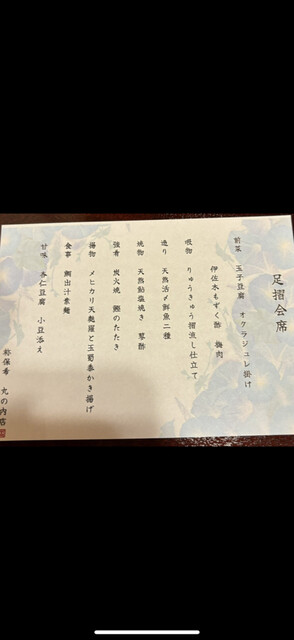 足摺会席
前菜 玉子豆腐 オクラジュレ掛け
伊佐木もずく酢 梅肉
吸物 りゅうきゅう摺流し仕立て
造り 天然活〆鮮魚二種
焼物 天然鮎塩焼き 蓼酢
強肴 炭火焼 鰹のたたき
揚物 メヒカリ天麩羅と玉蜀黍かき揚げ
食事 鯛出汁素麺
甘味 杏仁豆腐 小豆添え
祢保希 丸の内店